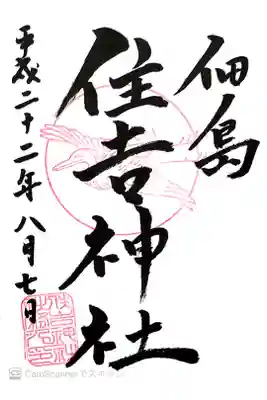 佃島
住吉神社
平成二十二年八月七日
CamScannerでスキャン